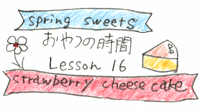 spring sweets
おやつの時間
Lesson 16
strawberry cheese cake